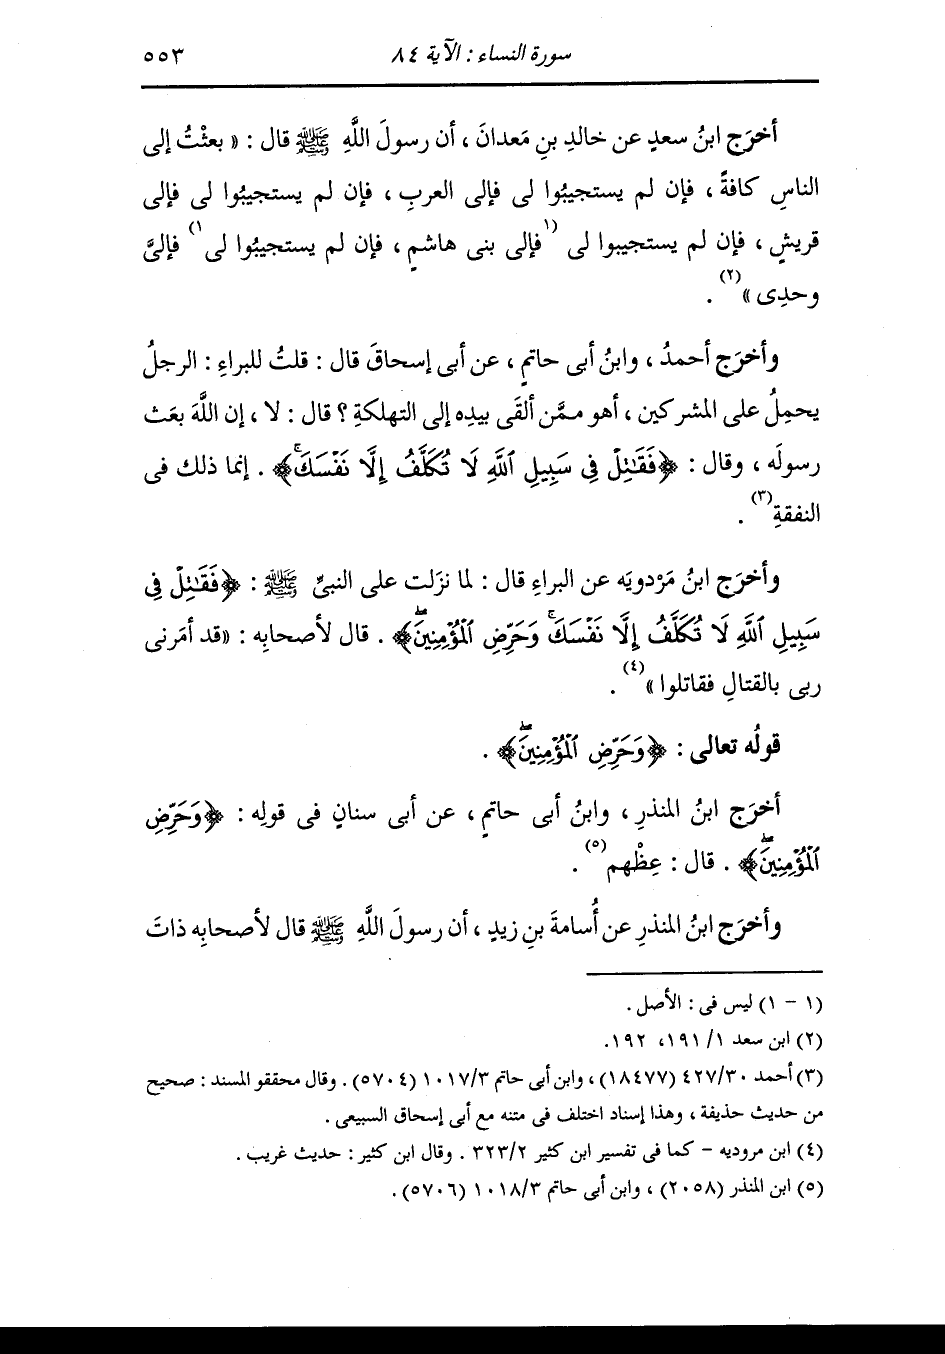 سورة النساء : الآية ٨٤
٥٥٣
أخرَج ابنُ سعدٍ عن خالدِ بنِ مَعدانَ ، أن رسولَ اللَّهِ ﷺ قال : « بعثْتُ إلى
الناسِ كافةً ، فإن لم يستجيبُوا لى فإلى العربِ ، فإن لم يستجيبُوا لى فإلى
قريشٍ ، فإن لم يستجيبوا لى (١فإلى بنى هاشمٍ ، فإن لم يستجيبُوا لى١) فإلىَّ
وحدِى »(٢) .
وأخرَج أحمدُ ، وابنُ أبى حاتمٍ ، عن أبى إسحاقَ قال : قلتُ للبراءِ : الرجلُ
يحمِلُ على المشركين ، أهو ممَّن ألقَى بيدِه إلى التهلكةِ ؟ قال : لا ، إن اللَّهَ بعَث
رسولَه ، وقال : ﴿فَقَٰتِلْ فِى سَبِيلِ ٱللَّهِ لَا تُكَلَّفُ إِلَّا نَفْسَكَۚ﴾ . إنما ذلك فى
النفقةِ(٣) .
وأخرَج ابنُ مَرْدويَه عن البراءِ قال : لما نزَلت على النبىِّ ﷺ : ﴿فَقَٰتِلْ فِى
سَبِيلِ ٱللَّهِ لَا تُكَلَّفُ إِلَّا نَفْسَكَۚ وَحَرِّضِ ٱلْمُؤْمِنِينَۖ﴾ . قال لأصحابِه : «قد أمَرنى
ربى بالقتالِ فقاتلوا »(٤) .
قولُه تعالى : ﴿وَحَرِّضِ ٱلْمُؤْمِنِينَۖ﴾ .
أخرَج ابنُ المنذرِ ، وابنُ أبى حاتمٍ ، عن أبى سنانٍ فى قولِه : ﴿وَحَرِّضِ
ٱلْمُؤْمِنِينَۖ﴾ . قال : عِظْهم(٥) .
وأخرَج ابنُ المنذرِ عن أُسامةَ بنِ زيدٍ ، أن رسولَ اللَّهِ ﷺ قال لأصحابِه ذاتَ
(١ - ١) ليس فى : الأصل .
(٢) ابن سعد ١/ ١٩١، ١٩٢.
(٣) أحمد ٤٢٧/٣٠ (١٨٤٧٧) ، وابن أبى حاتم ١٠١٧/٣ (٥٧٠٤) . وقال محققو المسند : صحيح
من حديث حذيفة ، وهذا إسناد اختلف فى متنه مع أبى إسحاق السبيعى .
(٤) ابن مروديه - كما فى تفسير ابن كثير ٣٢٣/٢ . وقال ابن كثير : حديث غريب .
(٥) ابن المنذر (٢٠٥٨) ، وابن أبى حاتم ١٠١٨/٣ (٥٧٠٦) .